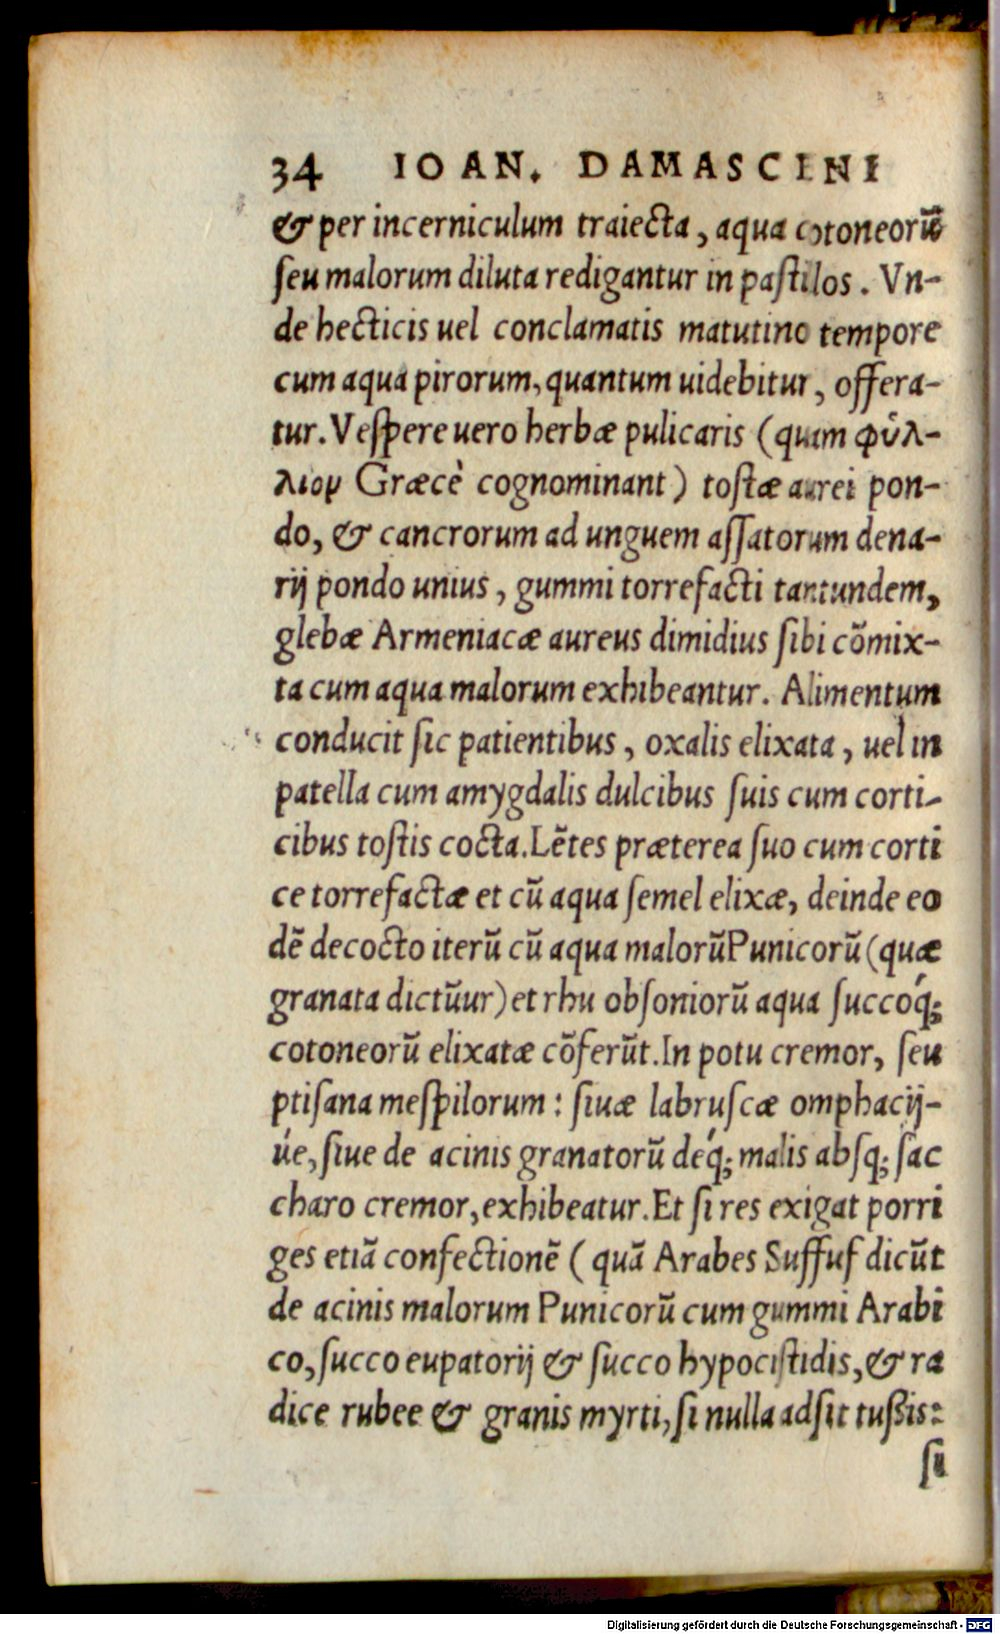 34 IOAN. DAMASCINI
& per incerniculum traiecta, aqua cotoneorũ
ſeu malorum diluta redigantur in paſtilos. Vn-
de hecticis uel conclamatis matutino tempore
cum aqua pirorum, quantum uidebitur, offera-
tur. Veſpere uero herbæ pulicaris (quam φύλ-
λιον Græcè cognominant) toſtæ aurei pon-
do, & cancrorum ad unguem aſſatorum dena-
rij pondo unius, gummi torrefacti tantundem,
glebæ Armeniacæ aureus dimidius ſibi cõmix-
ta cum aqua malorum exhibeantur. Alimentum
conducit ſic patientibus, oxalis elixata, uel in
patella cum amygdalis dulcibus ſuis cum corti-
cibus toſtis cocta. Lẽtes præterea ſuo cum corti
ce torrefactæ et cũ aqua ſemel elixæ, deinde eo
dẽ decocto iterũ cũ aqua malorũ Punicorũ (quæ
granata dictũur) et rhu obſoniorũ aqua ſuccoq́;
cotoneorũ elixatæ cõferũt. In potu cremor, ſeu
ptiſana meſpilorum: ſiuæ labruſcæ omphacij-
úe, ſiue de acinis granatorũ deq́; malis abſq; ſac
charo cremor, exhibeatur. Et ſi res exigat porri
ges etiã confectionẽ (quã Arabes Suffuf dicũt
de acinis malorum Punicorũ cum gummi Arabi
co, ſucco eupatorij & ſucco hypociſtidis, & ra
dice rubee & granis myrti, ſi nulla adſit tußis:
ſi
Digitalisierung gefördert durch die Deutsche Forschungsgemeinschaft - DFG